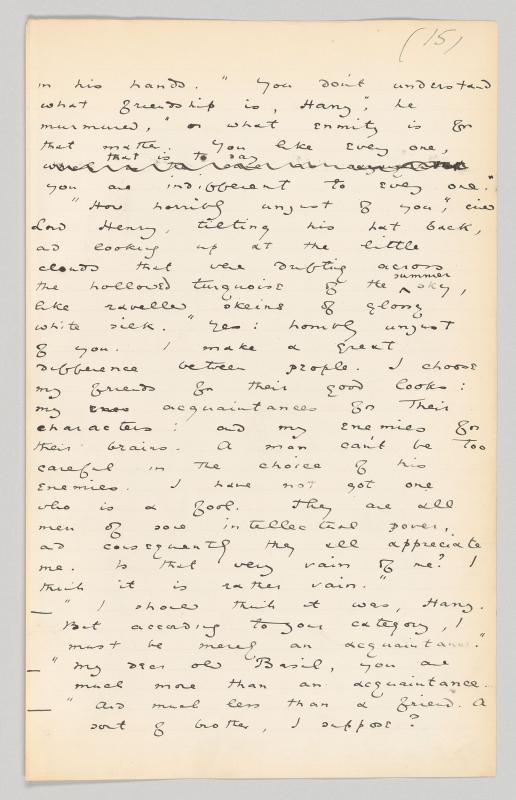 (15)
in his hands. "You don't understand
what friendship is, Harry", he
murmured, "or what enmity is for
that matter. You like every one,
that is to say
you are indifferent to every one."
"How horribly unjust of you", cried
Lord Henry, tilting his hat back,
and looking up at the little
clouds that were drifting across
summer
the hollowed turquoise of the sky,
like ravelled skeins of glossy
white silk. "Yes: horribly unjust
of you. I make a great
difference between people. I choose
my friends for their good looks:
my acquaintances for their
characters: and my enemies for
their brains. A man can't be too
careful in the choice of his
enemies. I have not got one
who is a fool. They are all
men of some intellectual power,
and consequently they all appreciate
me. Is that very vain of me? I
think it is rather vain."
"I should think it was, Harry.
But according to your category, I
must be merely an acquaintance."
"My dear old Basil, you are
much more than an acquaintance.
"And much less than a friend. A
sort of brother, I suppose?